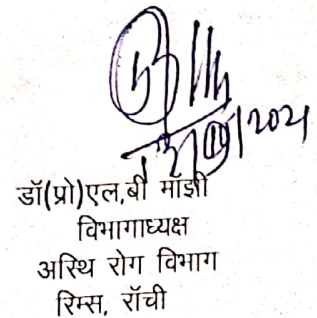 डॉ(प्रो)एल,बी मांझी
विभागाध्यक्ष
अस्थि रोग विभाग
रिम्स, रॉची